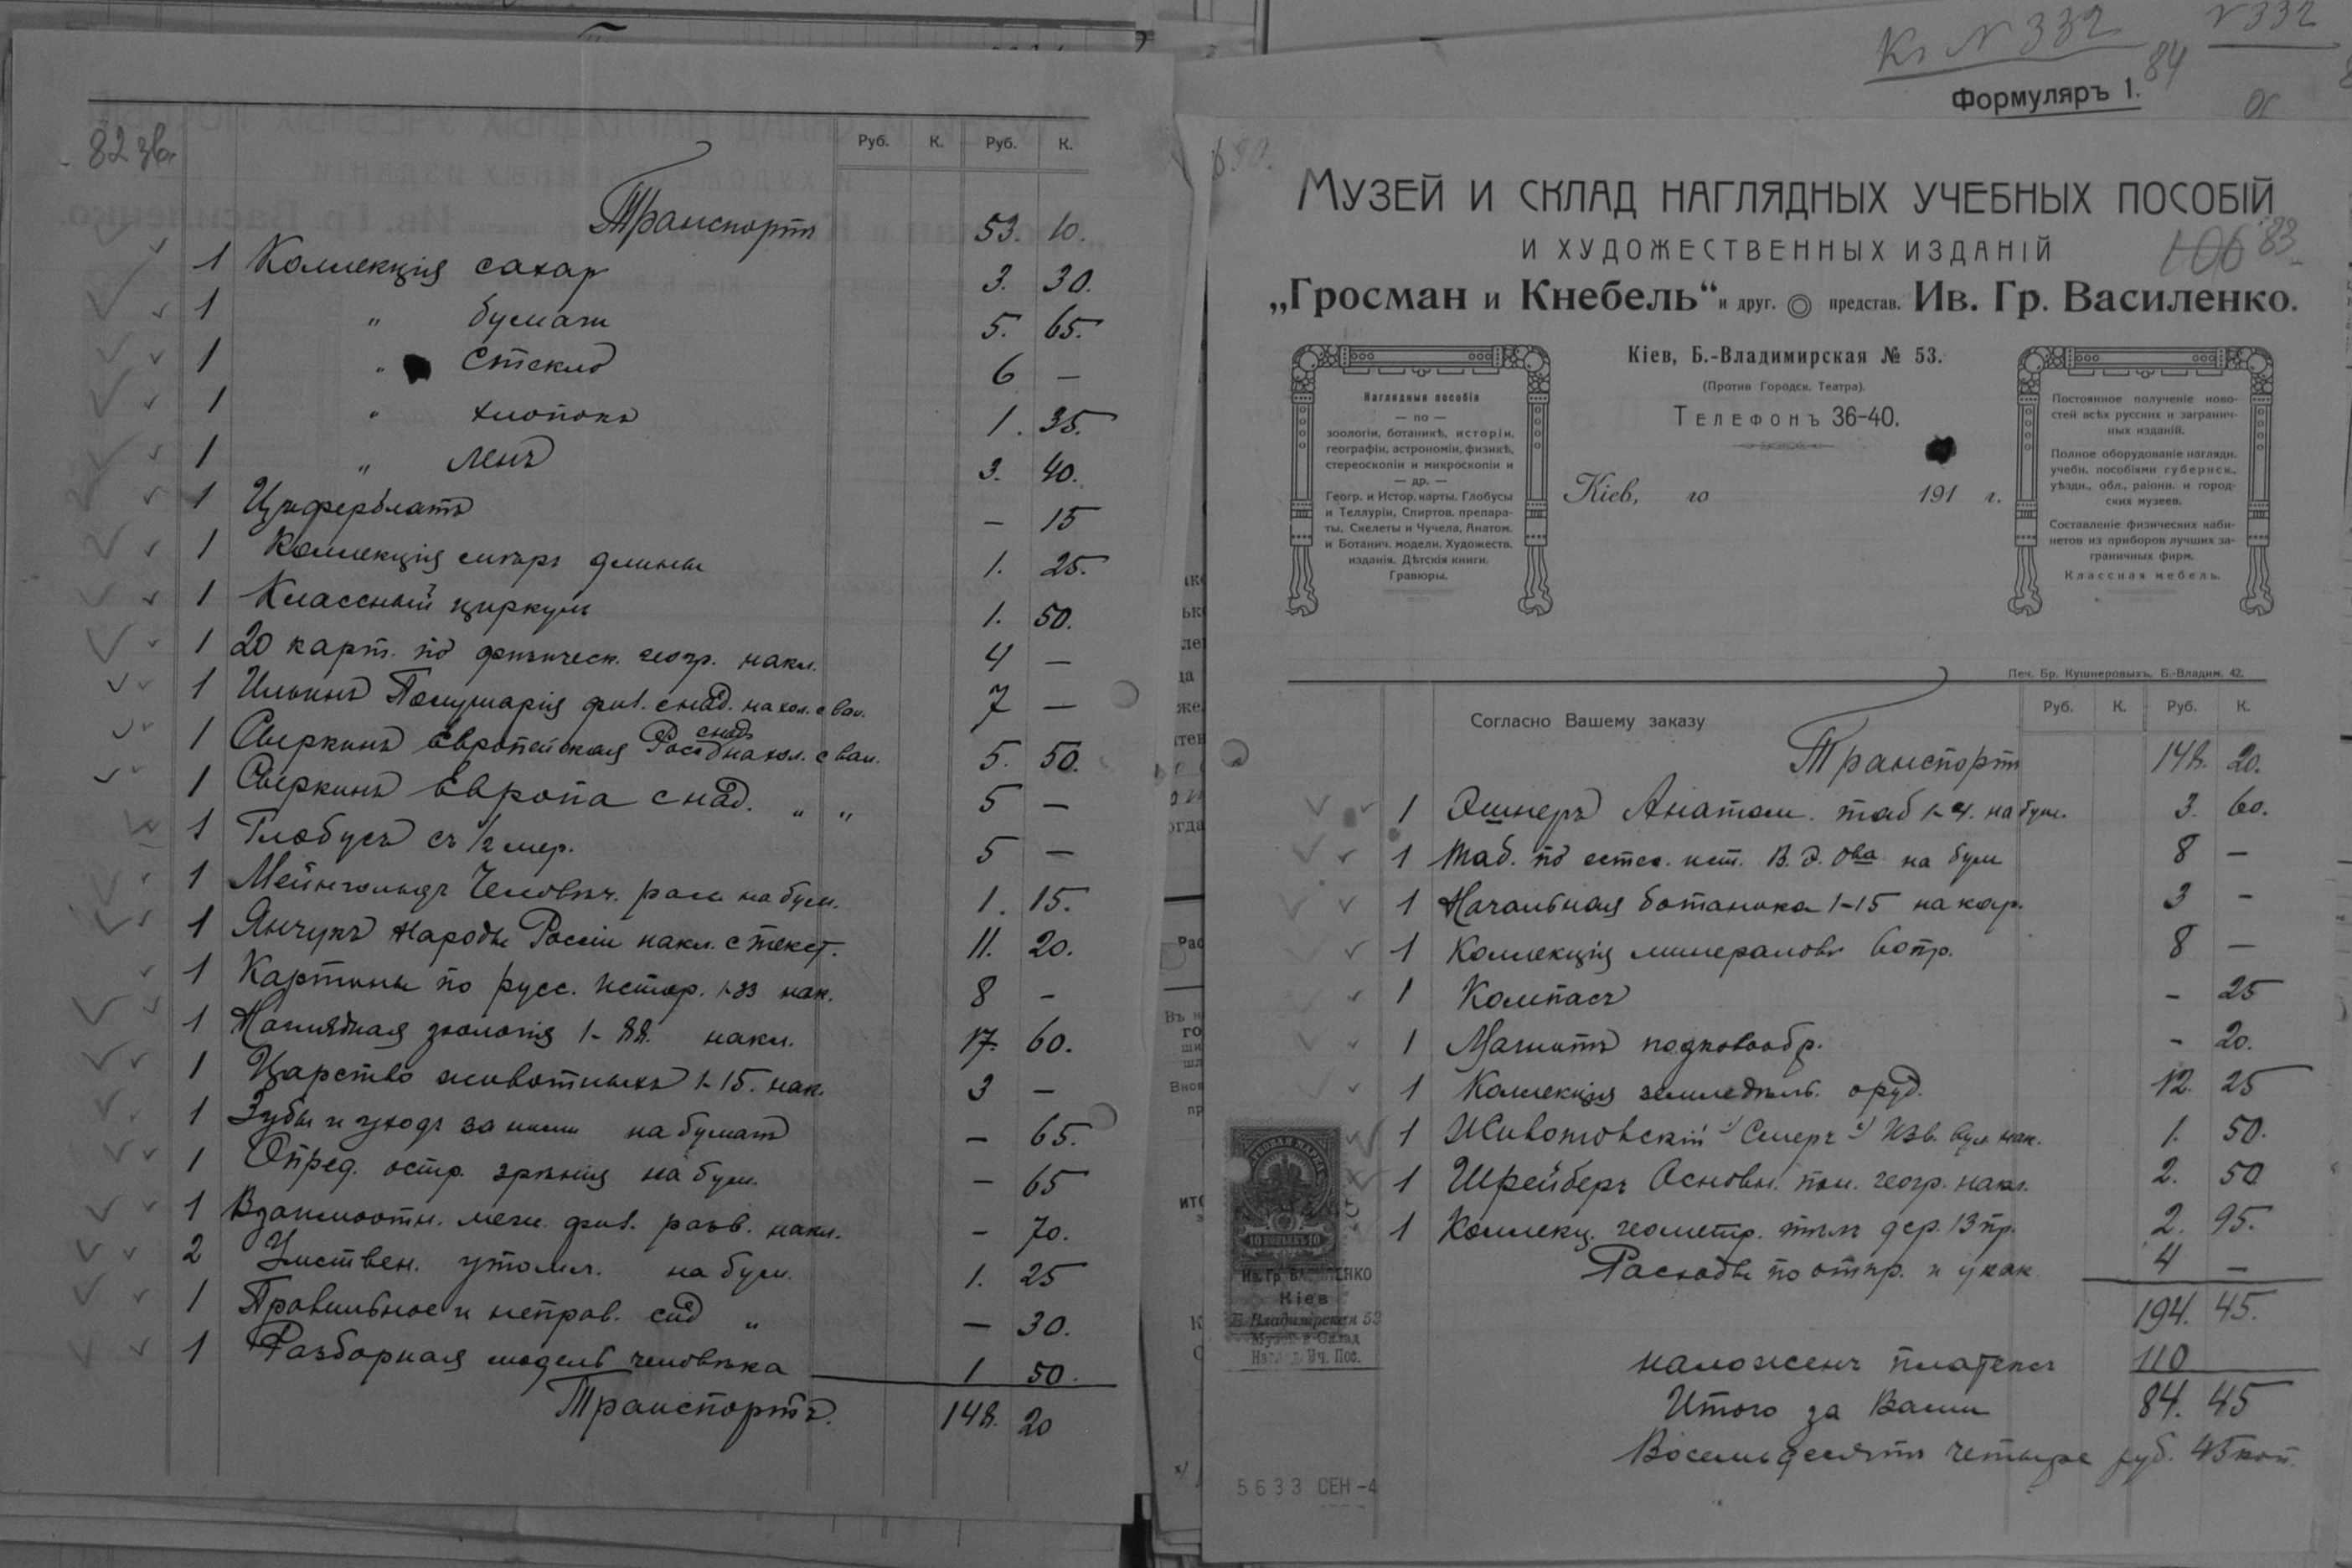 82 зв.
Руб. К. Руб. К.
Транспортъ 53. 10.
1 Коллекція сахар 3. 30.
1 " бумаги 5. 65.
1 " Стекло 6 —
1 " хлопокъ 1. 35.
1 " ленъ 3. 40.
1 Циферблатъ — 15
1 Коллекція мѣръ длины 1. 25.
1 Классный циркуль 1. 50.
1 20 карт. по физическ. геогр. накл. 4 —
1 Ильинъ Полушарія физ. снад. на хол. с вал. 7 —
1 Сыркинъ Европейская Рос. снад. на хол. с вал. 5. 50.
1 Сыркинъ Европа снад. " " 5 —
1 Глобусъ съ 1/2 мер. 5 —
1 Мейнгольдъ Человѣч. расы на бум. 1. 15.
1 Янчукъ Народы Россіи накл. с текст. 11. 20.
1 Картины по русс. истор. 1-33 нак. 8 —
1 Наглядная зоологія 1-88. накл. 17. 60.
1 Царство животныхъ 1-15. нак. 3 —
1 Зубы и уходъ за ними на бумагѣ — 65.
1 Опред. остр. зрѣнія на бум. — 65
1 Взаимоотн. межд. физ. разв. накл. — 70.
2 Умствен. утомл. на бум. 1. 25
1 Правильное и неправ. сид " — 30.
1 Разборная модель человѣка 1 50.
Транспортъ. 148. 20
Кг N 332
N 332
84
Формуляръ 1.
Музей и склад наглядных учебных пособій
и художественных изданій
106 83
„Гросман и Кнебель“ и друг. представ. Ив. Гр. Василенко.
Кіев, Б.-Владимирская № 53.
(Против Городск. Театра).
Телефонъ 36-40.
Кіев, го 191 г.
Наглядныя пособія
— по —
зоологіи, ботаникѣ, исторіи,
географіи, астрономіи, физикѣ,
стереоскопіи и микроскопіи и
— др. —
Геогр. и Истор. карты. Глобусы
и Теллуріи, Спиртов. препара-
ты, Скелеты и Чучела, Анатом.
и Ботанич. модели. Художеств.
изданія. Дѣтскія книги.
Гравюры.
Постоянное полученіе ново-
стей всѣх русских и загранич-
ных изданій.
Полное оборудованіе наглядн.
учебн. пособіями губернск.,
уѣздн., обл., раіонн. и город-
ских музеев.
Составленіе физических каби-
нетов из приборов лучших за-
граничных фирм.
Классная мебель.
Печ. Бр. Кушнеровыхъ, Б.-Владим. 42.
Согласно Вашему заказу
Руб. К. Руб. К.
Транспортъ 148. 20.
1 Эшнеръ Анатом. таб 1-4. на бум. 3. 60.
1 Таб. по естес. ист. В. Э. Ова на бум 8 —
1 Начальная ботаника 1-15 на кар. 3 -
1 Коллекція минераловъ 60 пр. 8 —
1 Компасъ - 25
1 Магнитъ подковообр. - 20.
1 Коллекція земледѣльч. оруд. 12. 25
1 Животовскій Смерч Изв. вул. нак. 1. 50.
1 Шрейберъ Основн. пон. геогр. накл. 2. 50
1 Коллекц. геометр. тѣлъ дер. 13 пр. 2. 95.
Расходы по отпр. и упак 4 —
194. 45.
наложенъ платежъ 110
Итого за Вами 84. 45
Восемьдесятъ четыре руб. 45 коп.
10 КОПѢЕКЪ 10
Ив. Гр. ВАСИЛЕНКО
Кіев
Б. Владимірская 53
Музей и Склад
Нагл. Уч. Пос.
5633 СЕН -4